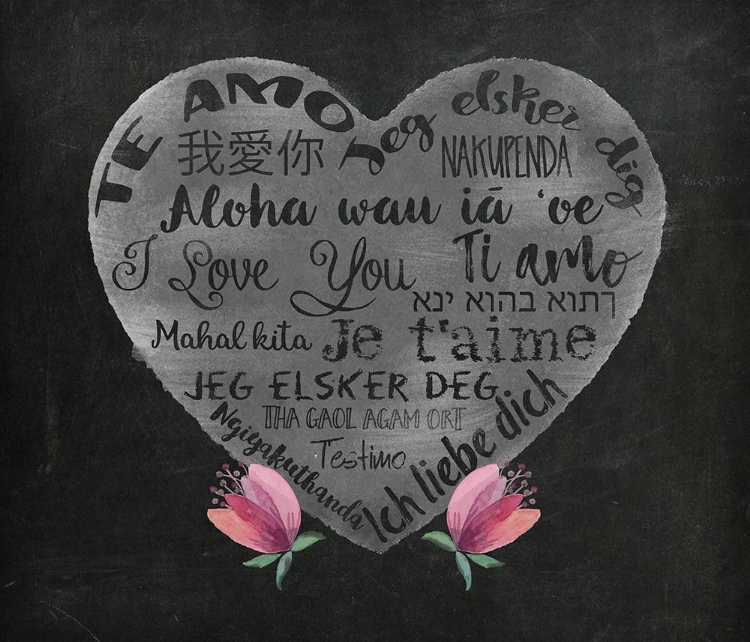 TE AMO
Jeg elsker dig
我愛你
NAKUPENDA
Aloha wau iā ‘oe
I Love You
Ti amo
ךתוא בהוא ינא
Mahal kita
Je t'aime
JEG ELSKER DEG
THA GAOL AGAM ORT
Ngiyakuthanda
Te estimo
Ich liebe dich